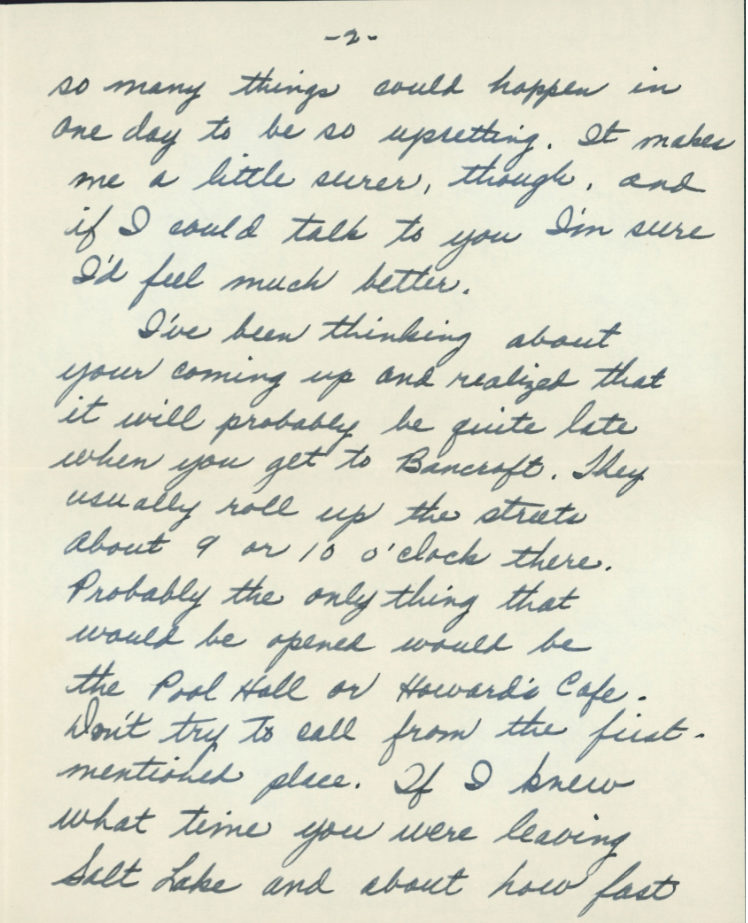 -2-
so many things could happen in
one day to be so upsetting. It makes
me a little surer, though, and
if I could talk to you I'm sure
I'd feel much better.
I've been thinking about
your coming up and realized that
it will probably be quite late
when you get to Bancroft. They
usually roll up the streets
about 9 or 10 o'clock there.
Probably the only thing that
would be opened would be
the Pool Hall or Howard's Cafe.
Don't try to call from the first-
mentioned place. If I knew
what time you were leaving
Salt Lake and about how fast